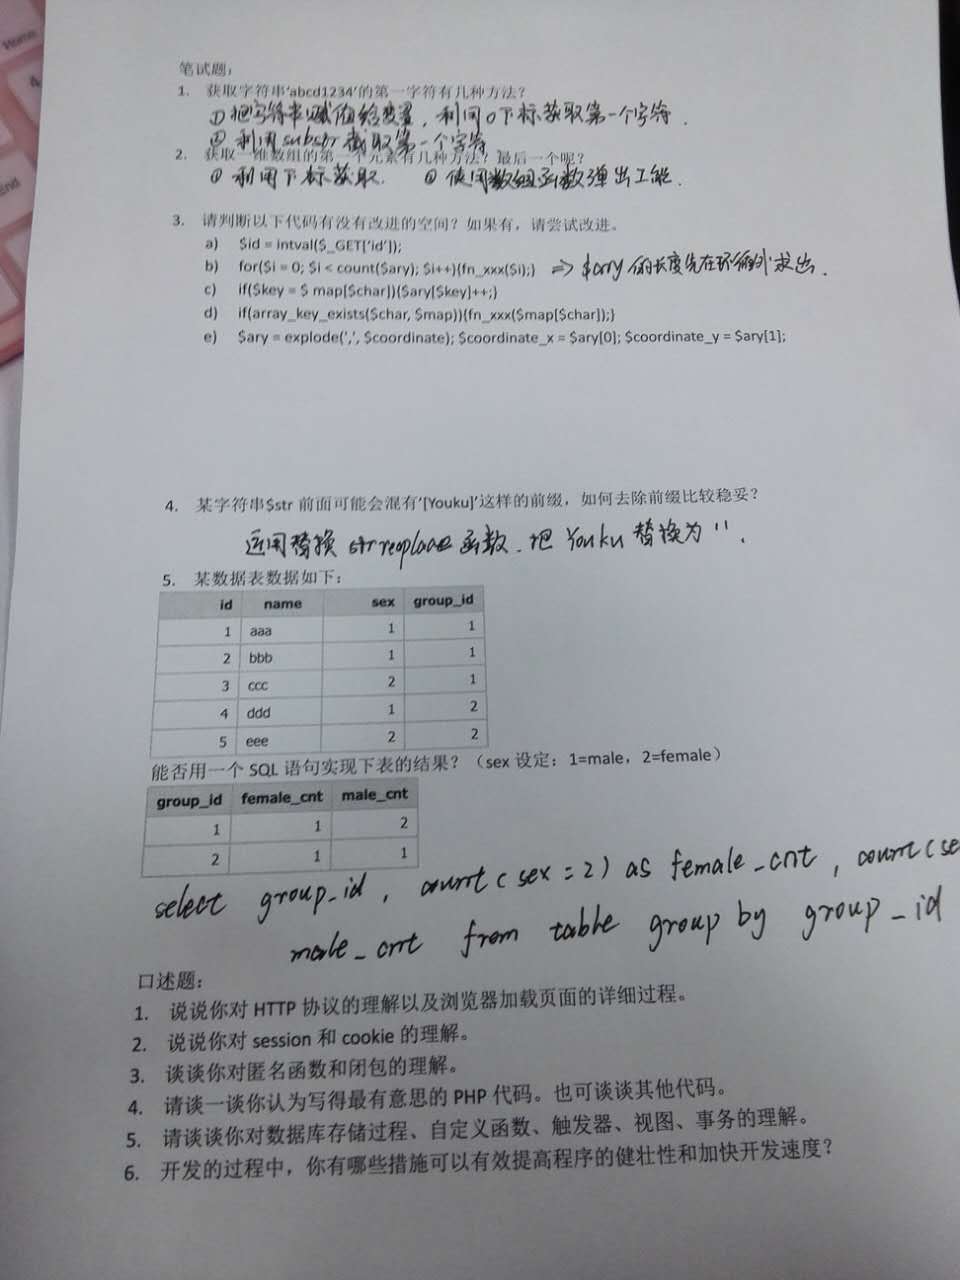 Home
4
End
笔试题:
1. 获取字符串'abcd1234'的第一字符有几种方法?
① 把字符串赋值给变量, 利用0下标获取第一个字符.
② 利用substr截取第一个字符
2. 获取一维数组的第一个元素有几种方法? 最后一个呢?
① 利用下标获取. ② 使用数组函数弹出工能.
3. 请判断以下代码有没有改进的空间? 如果有, 请尝试改进。
a) $id = intval($_GET['id']);
b) for($i = 0; $i < count($ary); $i++){fn_xxx($i);} => $arry的长度先在环循外求出.
c) if($key = $ map[$char]){$ary[$key]++;}
d) if(array_key_exists($char, $map)){fn_xxx($map[$char]);}
e) $ary = explode(',', $coordinate); $coordinate_x = $ary[0]; $coordinate_y = $ary[1];
4. 某字符串$str 前面可能会混有'[Youku]'这样的前缀, 如何去除前缀比较稳妥?
运用替换 函数. 把 Youku 替换为''.
5. 某数据表数据如下:
id name sex group_id
1 aaa 1 1
2 bbb 1 1
3 ccc 2 1
4 ddd 1 2
5 eee 2 2
能否用一个 SQL 语句实现下表的结果? (sex 设定: 1=male, 2=female)
group_id female_cnt male_cnt
1 1 2
2 1 1
select group_id, count(sex=2) as female_cnt, count(se
male_cnt from table group by group_id
口述题:
1. 说说你对 HTTP 协议的理解以及浏览器加载页面的详细过程。
2. 说说你对 session 和 cookie 的理解。
3. 谈谈你对匿名函数和闭包的理解。
4. 请谈一谈你认为写得最有意思的 PHP 代码。也可谈谈其他代码。
5. 请谈谈你对数据库存储过程、自定义函数、触发器、视图、事务的理解。
6. 开发的过程中, 你有哪些措施可以有效提高程序的健壮性和加快开发速度?